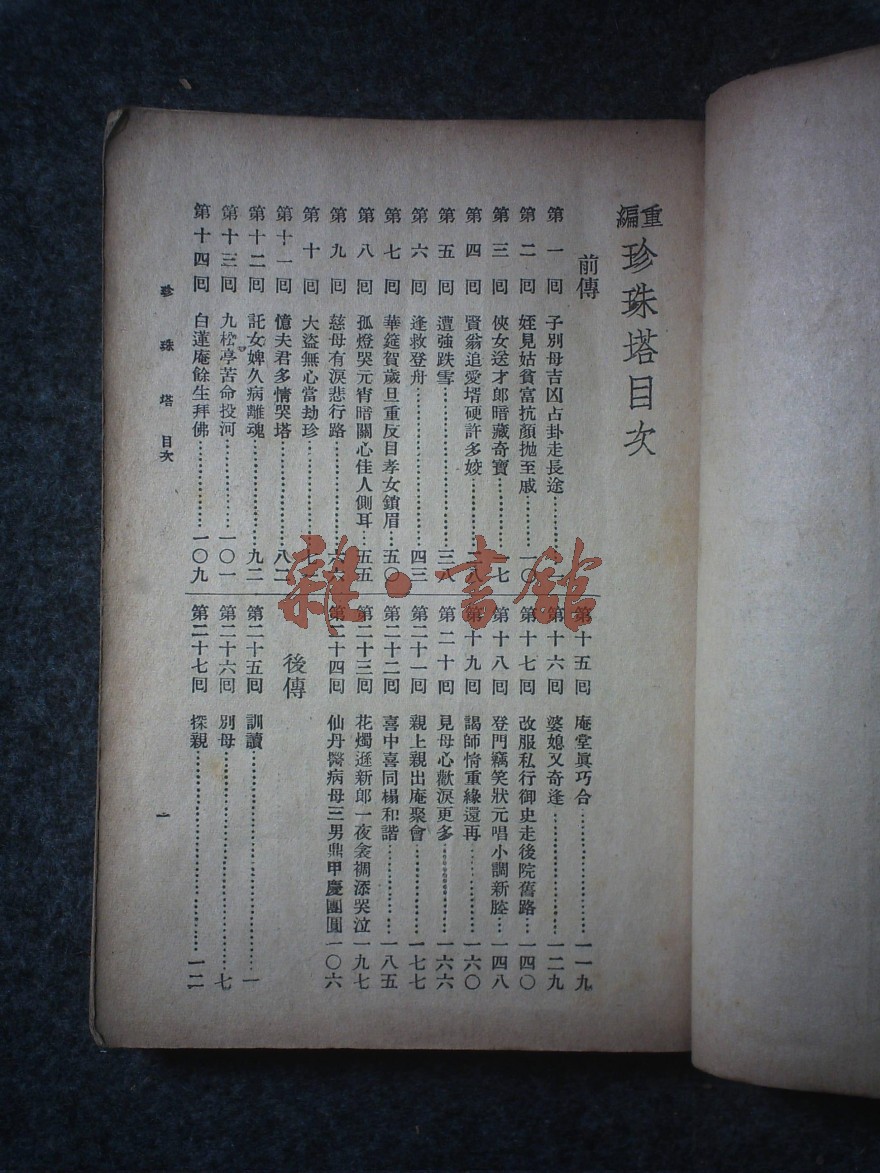 重編珍珠塔目次
前傳
第一回 子別母吉凶占卦走長途
第二回 姪見姑貧富抗顏拋至戚……一〇
第三回 俠女送才郎暗藏奇寶……一七
第四回 賢翁追愛壻硬許多姣……二八
第五回 遭強跌雪……三八
第六回 逢救登舟……四三
第七回 華筵賀歲旦重反目孝女鎖眉……五〇
第八回 孤燈哭元宵暗關心佳人側耳……五五
第九回 慈母有淚悲行路……六六
第十回 大盜無心當劫珍
第十一回 憶夫君多情哭塔……八二
第十二回 託女婢久病離魂……九二
第十三回 九松亭苦命投河……一〇一
第十四回 白蓮庵餘生拜佛……一〇九
第十五回 庵堂眞巧合……一一九
第十六回 婆媳又奇逢……一二九
第十七回 改服私行御史走後院舊路……一四〇
第十八回 登門竊笑狀元唱小調新腔……一四八
第十九回 謁師情重緣還再……一六〇
第二十回 見母心歡淚更多……一六六
第二十一回 親上親出庵聚會……一七七
第二十二回 喜中喜同榻和諧……一八五
第二十三回 花燭遜新郎一夜衾裯添哭泣一九七
第二十四回 仙丹醫病母三男鼎甲慶團圓一〇六
後傳
第二十五回 訓讀……一
第二十六回 別母……七
第二十七回 探親……一二
珍珠塔 目次
一
雜·書館